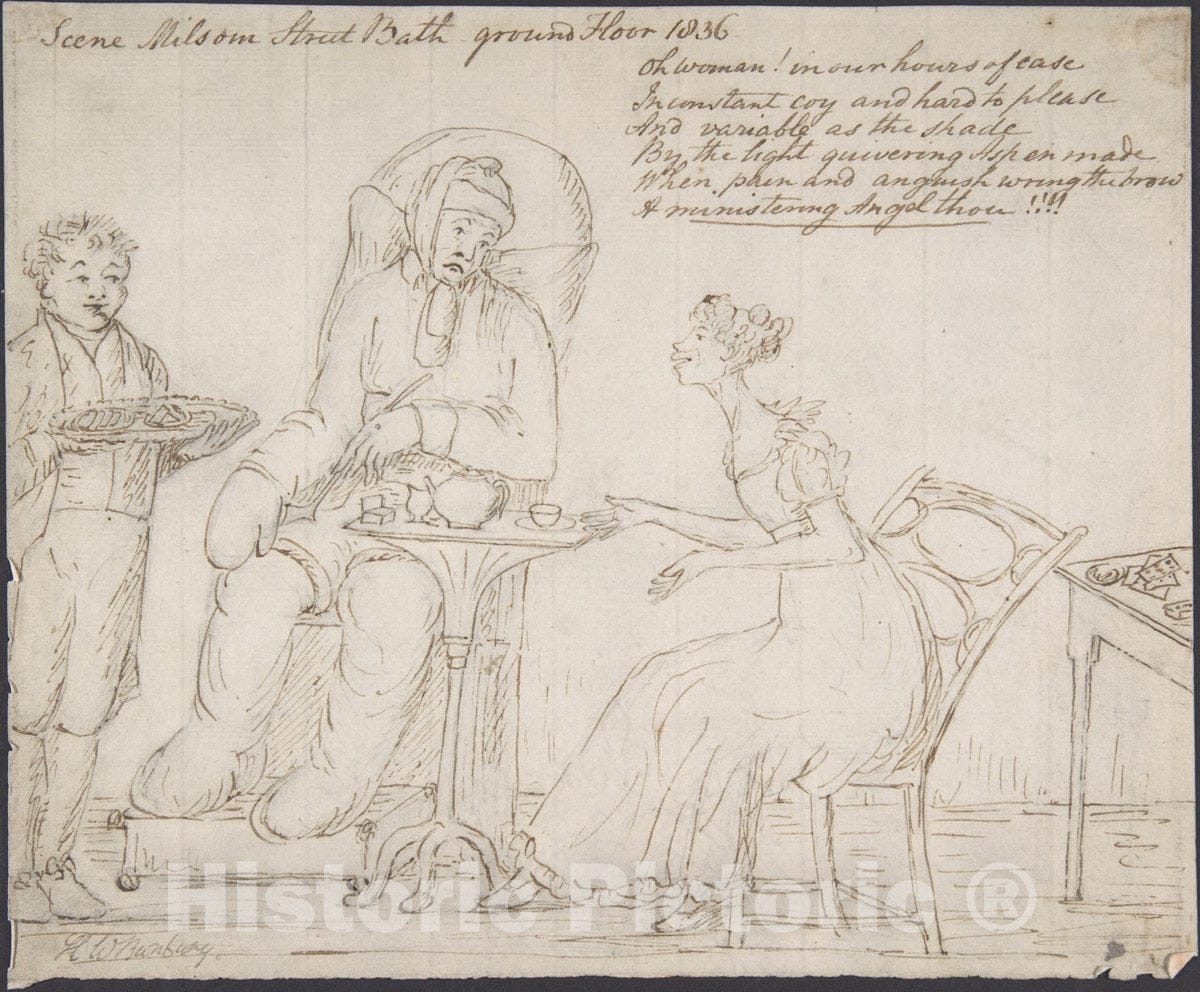 Scene Milsom Street Bath ground Floor 1836
Oh woman! in our hours of ease
Inconstant coy and hard to please
And variable as the shade
By the light quivering Aspen made
When pain and anguish wring the brow
A ministering Angel thou !!!!
Historic Pictoric ®
H W Bunbury.